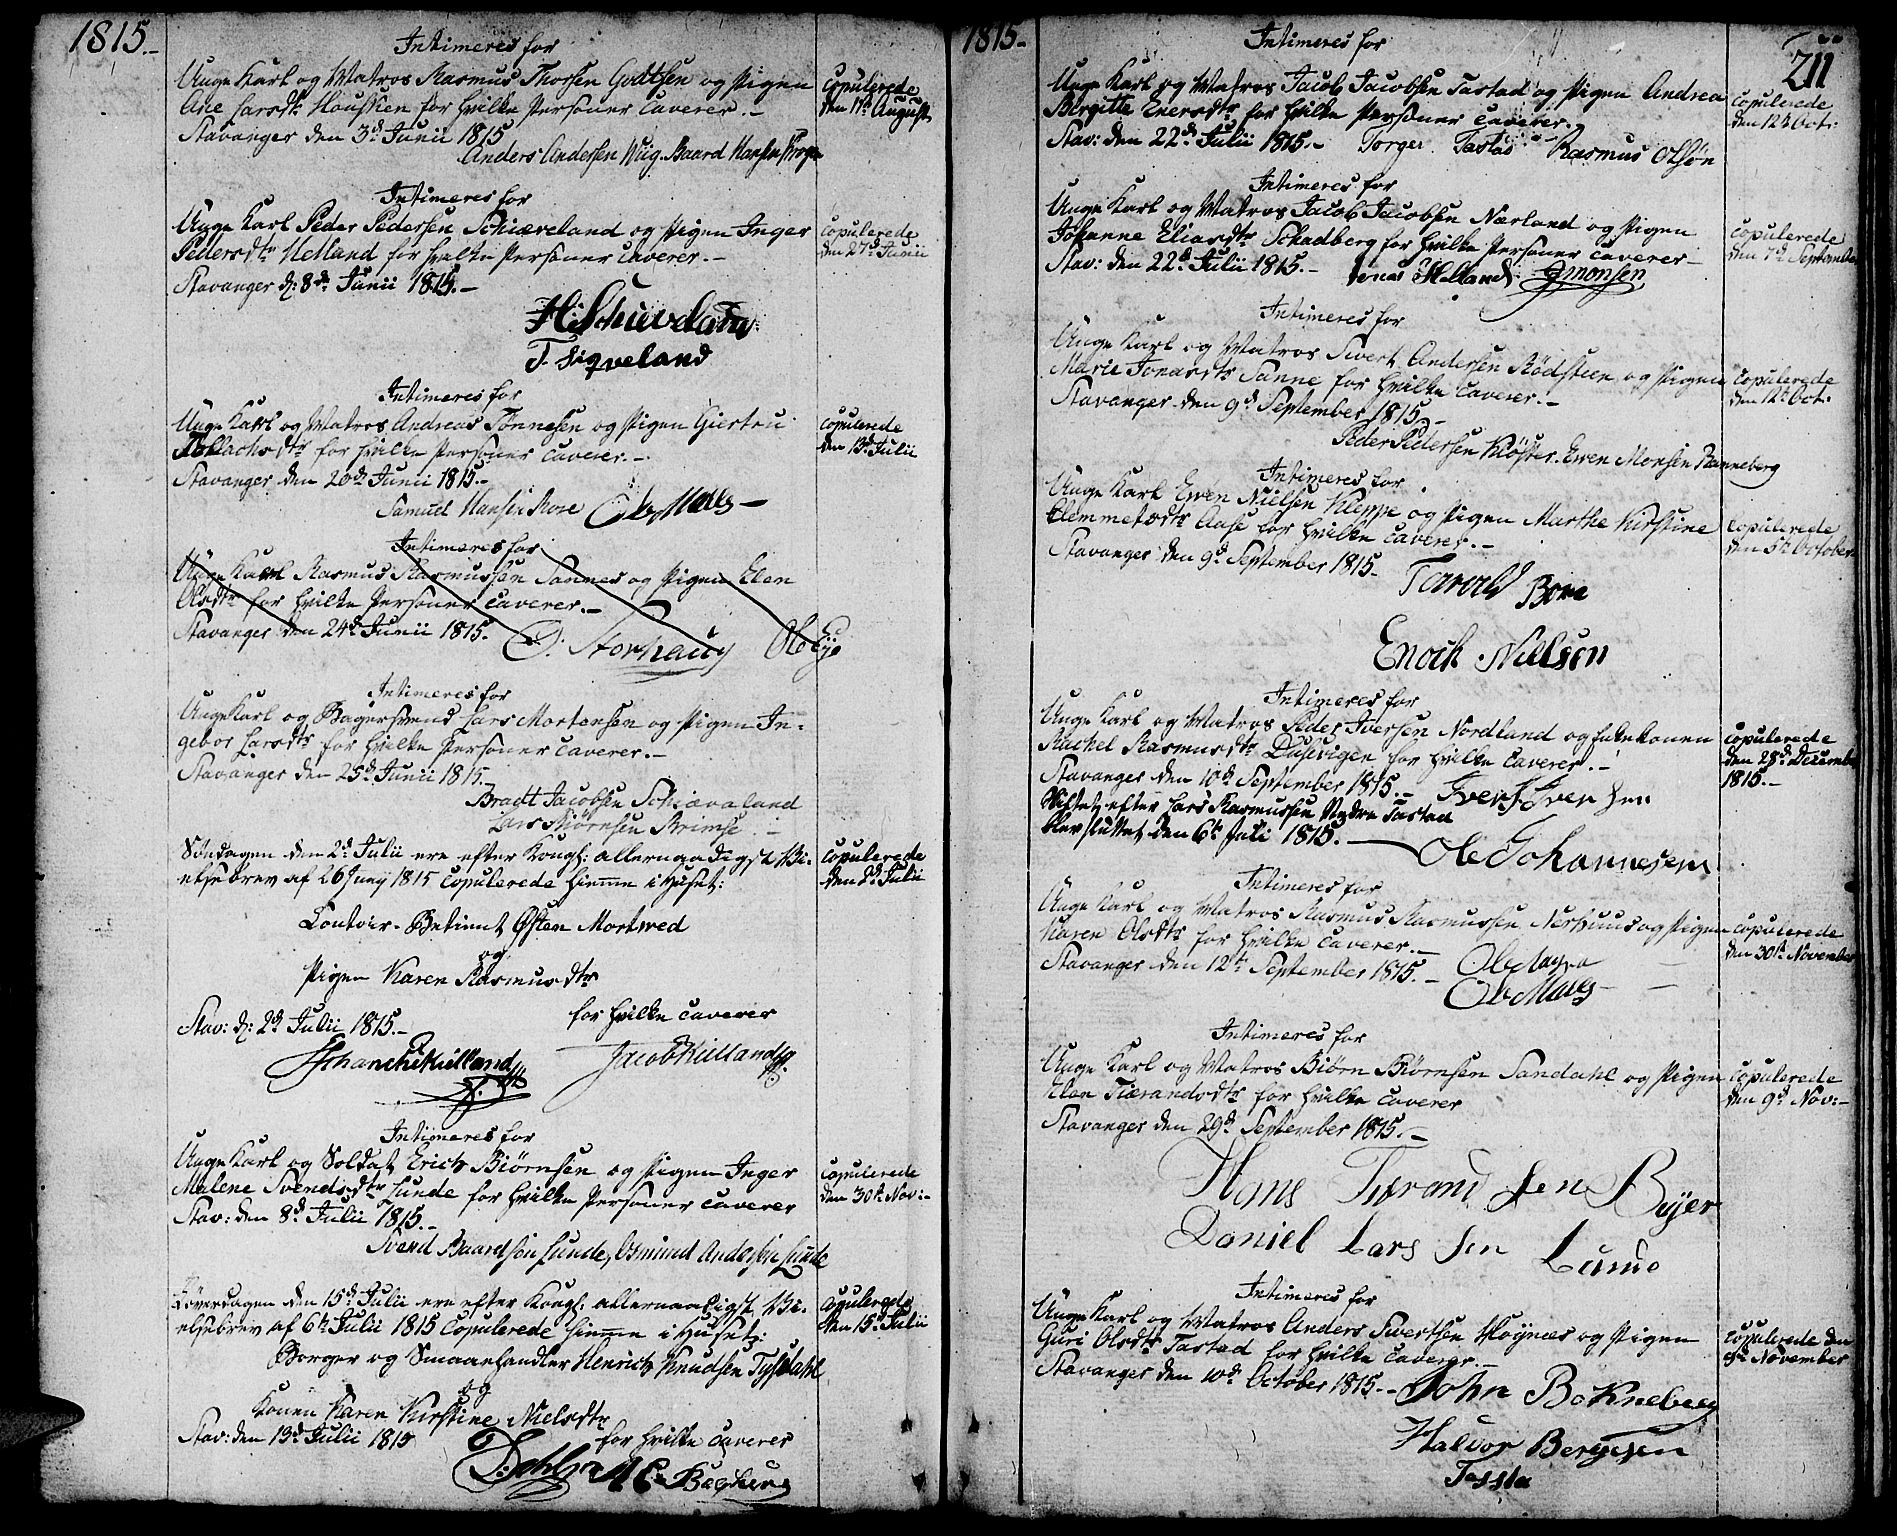 1815.-
Intimeres for
Unge Karl og Matros Rasmus Thorsen Godtsen og Pigen
Ane Larsdtr Houssken for hvilke Personer caverer.-
Stavanger den 3d Junii 1815
Anders Andersen Wiig. Baard Hansen
copulerede
den 11te August
Intimeres for
Unge Karl Peder Pedersen Schiæveland og Pigen Inger
Pedersdtr Hetland for hvilke Personer caverer.-
Stavanger d: 8de Junii 1815.-
T. Siqveland
copulerede
den 27d Junii
Intimeres for
Unge Karl og Matros Andreas Tønnesen og Pigen Giertru
Tollachsdtr for hvilke Personer caverer.-
Stavanger den 20de Junii 1815.-
Samuel Hansen Rose
copulerede
den 13d Julii
Intimeres for
Unge Karl Rasmus Rasmussen Sannes og Pigen Elen
Olsdtr for hvilke Personer caverer.-
Stavanger den 24d Junii 1815.
O. Storhaug Ole Eye
Intimeres for
Unge Karl og Bagersvend Lars Mortensen og Pigen In-
gebor Larsdtr for hvilke Personer caverer.-
Stavanger den 25d Junii 1815.-
Bradt Jacobsen Schiævaland
Lars Biørnsen Brimse
Søndagen den 2d Julii ere efter Kongl: allernaadigst Bi-
elsebrev af 26 Junij 1815 Copulerede hiemme i Huset:
Contoir-Betient Østen Mortwed
og
Pigen Karen Rasmusdtr
for hvilke caverer
Stav: d: 2d Julii 1815.-
Jacob Kielland
copulerede
den 2d Julii
Intimeres for
Unge Karl og Soldat Erich Biørnsen og Pigen Inger
Malene Svendsdtr Lunde for hvilke Personer caverer
Stav: den 8d Julii 1815.-
Svend Baardsøn Lunde, Osmund Andersen Lunde
copulerede
den 30te Nov:-
Løverdagen den 15d Julii ere efter Kongl: allernaadigst Bi-
elsebrev af 6te Julii 1815 Copulerede hiemme i Huset:
Borger og Smaaehandler Henrich Knudsen Tysdahl
og
Konen Karen Kirstine Nielsdtr
for hvilke caverer
Stav: den 13d Julii 1815
copulerede
den 15d Julii
1815.-
211
Intimeres for
Unge Karl og Matros Jacob Jacobsen Tastad og Pigen Andrea
Birgitte Enersdtr for hvilke Personer caverer.
Stav: den 22d Julii 1815.- Torger Tastad Rasmus Olsøn
copulerede
den 12te Oct:
Intimeres for
Unge Karl og Matros Jacob Jacobsen Nærland og Pigen
Johanne Eliasdtr Schadberg for hvilke Personer caverer
Stav: den 22d Julii 1815.- Jonas Helland
copulerede
den 7d September
Intimeres for
Unge Karl og Matros Sivert Andersen Rødsteen og Pigen
Marie Jonasdtr Sanne for hvilke caverer.-
Stavanger den 9d September 1815.-
Peder Pedersen Kloster. Ewen Monsen Ranneberg
copulerede
den 12te Oct:
Intimeres for
Unge Karl Ewen Nielsen Kleppe og Pigen Marthe Kirstine
Clemmetsdtr Aase for hvilke caverer.-
Stavanger den 9d September 1815.-
Tarald Bore
Enoch Nielsen
copulerede
den 5te October
Intimeres for
Unge Karl og Matros Peder Iversen Nordland og Enkekonen
Rachel Rasmusdtr Dusevigen for hvilke caverer.-
Stavanger den 10d September 1815.- Iver Iversen
Skiftet efter Lars Rasmussen Nedre Tastad
blev sluttet den 6te Juli 1815.-
Ole Johannesen
copulerede
den 28d December
1815.-
Intimeres for
Unge Karl og Matros Rasmus Rasmussen Nerhuus og Pigen
Karen Olsdtr for hvilke caverer.-
Stavanger den 12te September 1815.-
copulerede
den 30te November
Intimeres for
Unge Karl og Matros Biørn Biørnsen Sandahl og Pigen
Elen Tiærandsdtr for hvilke caverer
Stavanger den 29d September 1815.-
Hans Tørand sen Byjer
Daniel Lars sen Lunde
copulerede
den 9d Nov:-
Intimeres for
Unge Karl og Matros Anders Sivertsen Høynæs og Pigen
Guri Olsdtr Tastad for hvilke caverer.-
Stavanger den 10d October 1815.- John Bokneberg
Halvor Bergesen
Tasta
copulerede den
9d November